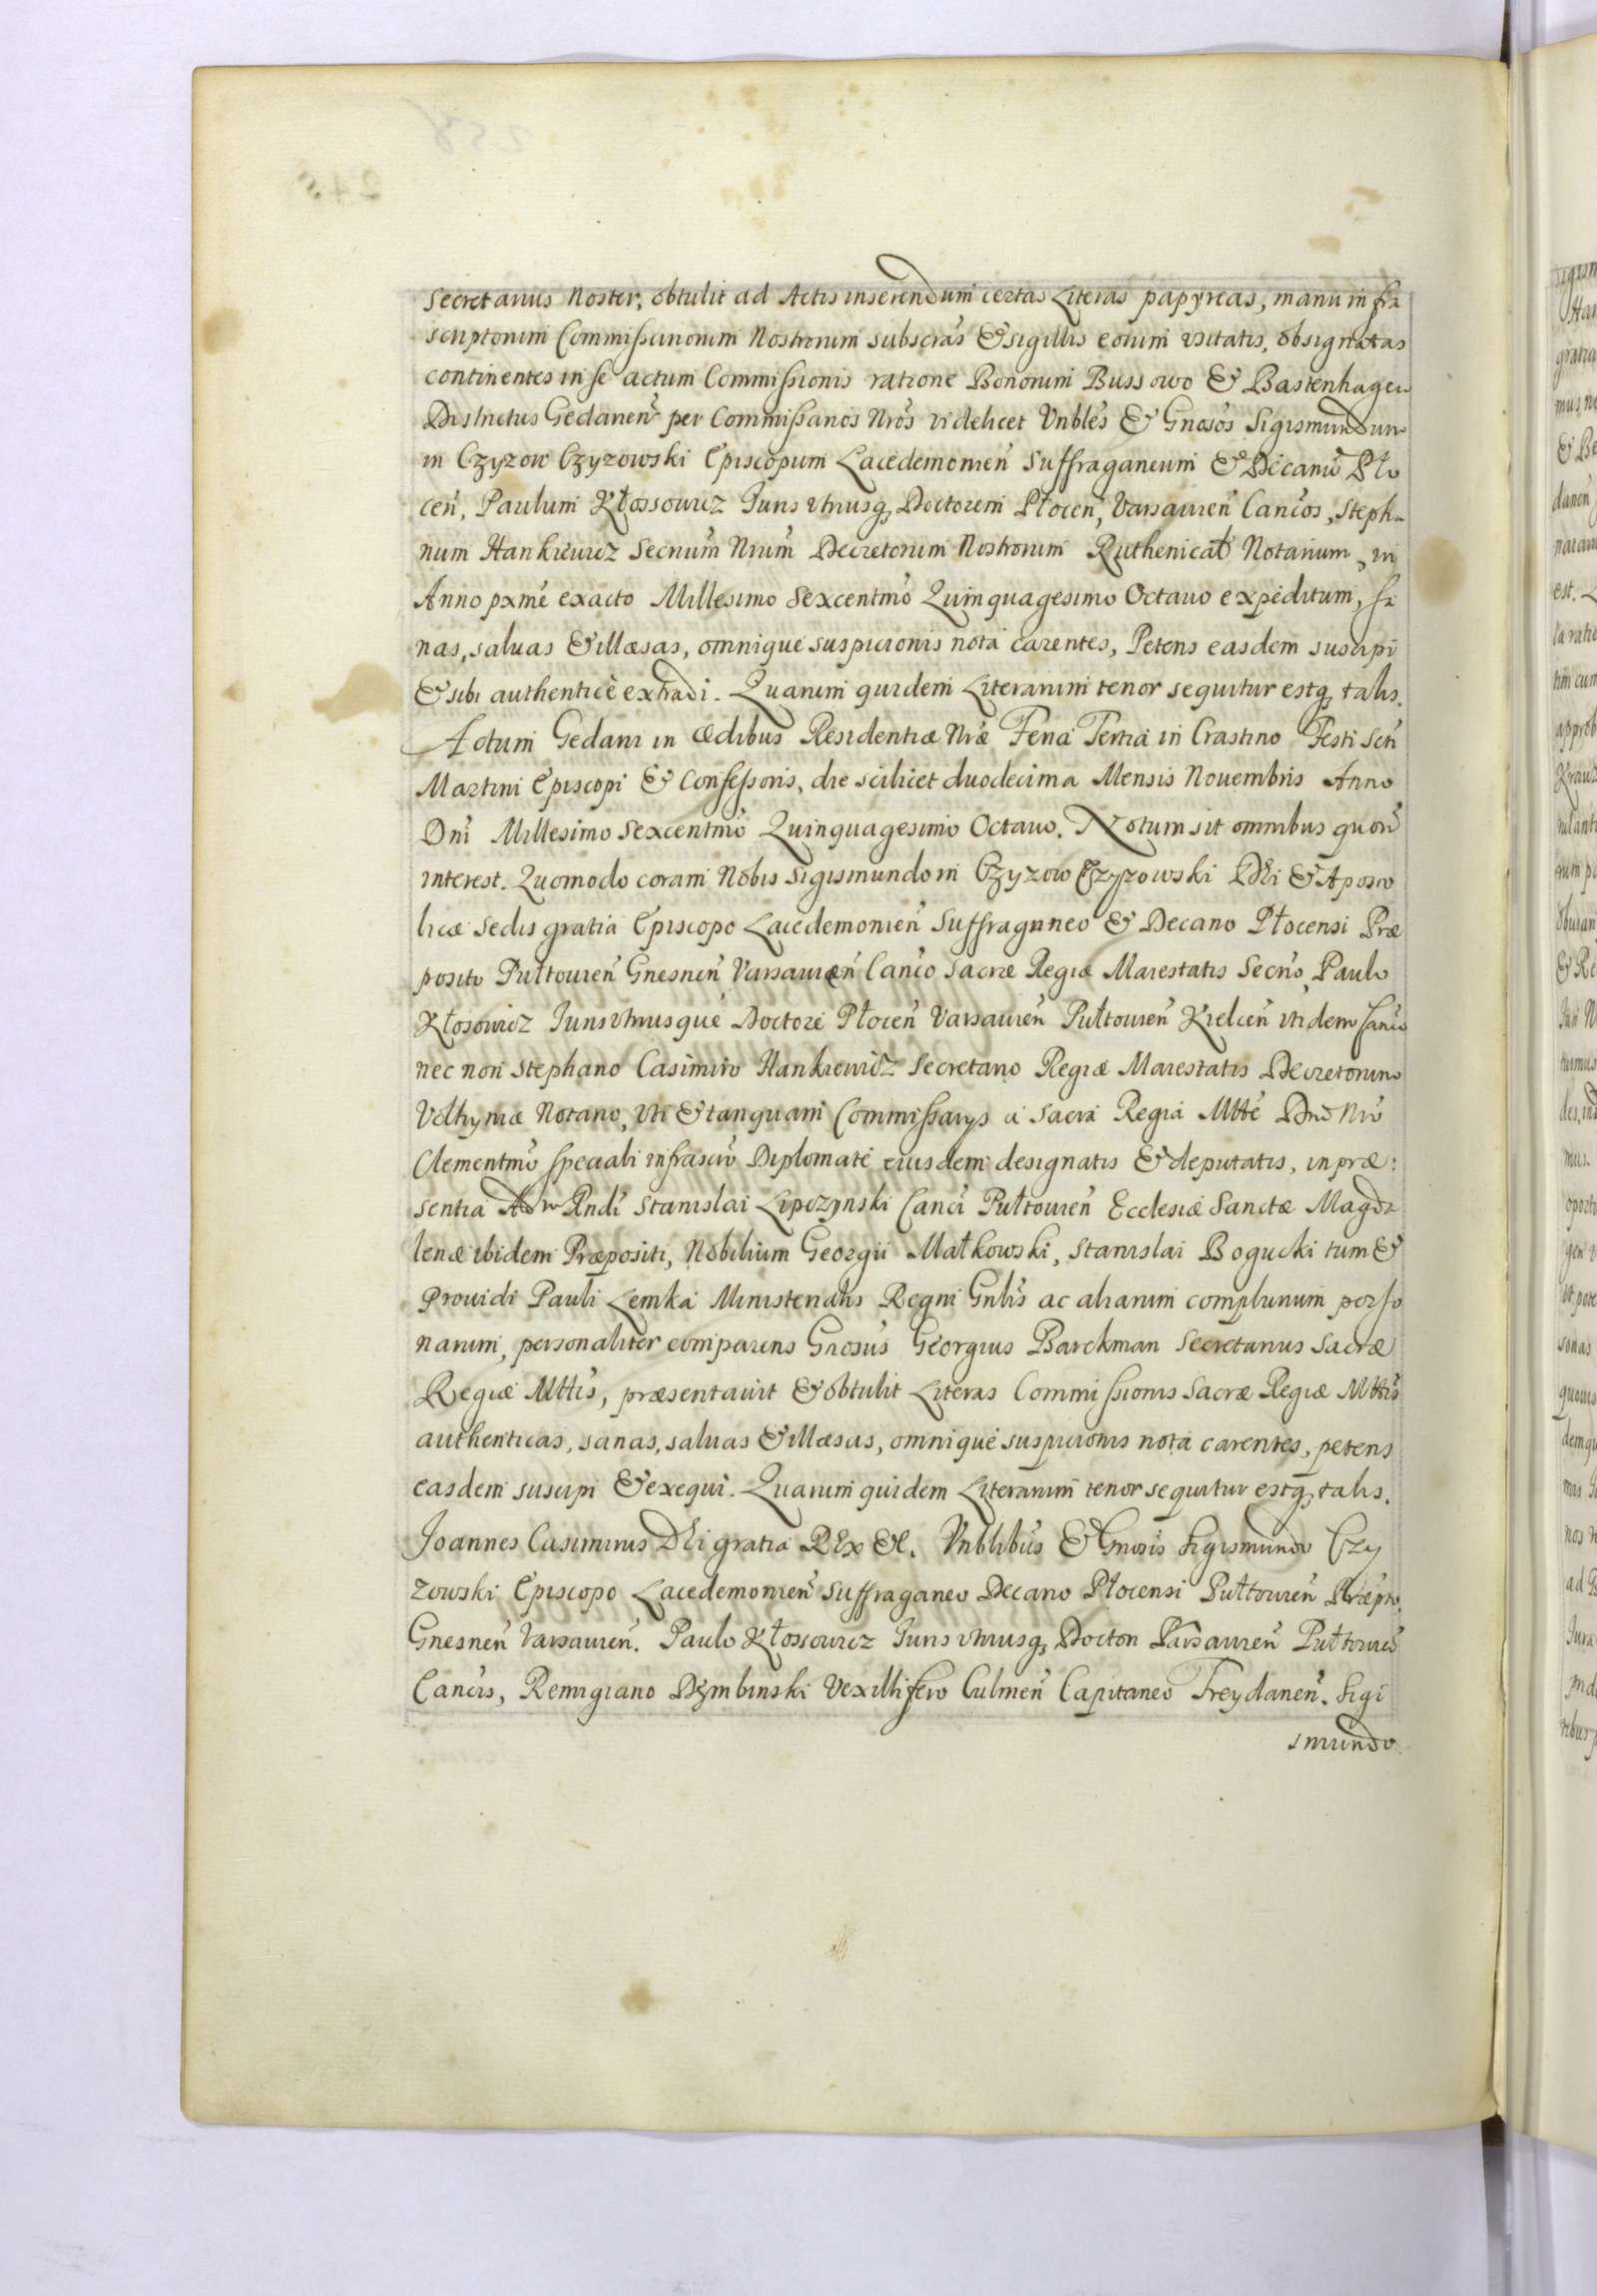 Secretarius Noster, obtulit ad Actis inserendum certas Literas papyreas, manu infra
scriptorum Commissariorum Nostrorum subscrãs & sigillis eorum usitatis, obsignatas
continentes in se actum Commissionis ratione Bonorum Bussowo & Bastenhagen
Districtus Gedanen̄ per Commissarios Nrōs videlicet Vnblēs & Gnosōs Sigismundum
in Czyzow Czyzowski Episcopum Lacedemonien̄ Suffraganeum & Decanū Pło
cen̄, Paulum Kłossowicz Juris Vtriusq, Doctorem Płocen̄, Varsauien̄ Canc̄os, Stepha
num Hankiewicz Secrium̄ Nrum̄ Decretorum Nostrorum Ruthenicał Notarium, in
Anno pxmē exacto Millesimo Sexcentm̄o Quinquagesimo Octauo expeditum, sa
nas, saluas & illæsas, omnique suspicionis nota carentes, Petens easdem suscipi
& sibi authenticè extradi. Quarum quidem Literarum tenor sequitur estq, talis.
Actum Gedani in Ædibus Residentiæ Nræ Feria Tertia in Crastino Festi Scti
Martini Episcopi & Confessoris, die scilicet duodecima Mensis Nouembris Anno
Dnī Millesimo Sexcentm̄o Quinquagesimo Octauo. Notum sit omnibus quor̄
interest. Quomodo coram Nobis Sigismundo in Czyzow Czyzowski DEi & Aposto
licæ Sedis gratia Episcopo Lacedemonien̄ Suffraganeo & Decano Płocensi Præ
posito Pułtouien̄ Gnesnen̄ Varsauien̄ Canc̄o Sacræ Regiæ Maiestatis Secrio, Paulo
Kłosowicz Juris Vtriusque Doctore Płocen̄ Varsauien̄ Pułtouien̄ Kielcen̄ itidem Canc̄o
nec non Stephano Casimiro Hankiewicz Secretario Regiæ Maiestatis Decretorum
Volhyniæ Notario, vti & tanquam Commissarys a Sacra Regia Mtte Dnō Nrō
Clementmō speciali infrascro Diplomate eiusdem designatis & deputatis, in præ:
sentia Adm Rndi Stanislai Lipczynski Canci Pułtouien̄ Ecclesiæ Sanctæ Magda
lenæ ibidem Præpositi, Nobilium Georgii Małkowski, Stanislai Bogucki tum &
Prouidi Pauli Lemka Ministerialis Regni Gnlis ac aliarum complurium perso
narum, personaliter comparens Gnosus Georgius Barckman Secretarius Sacræ
Regiæ Mttis, præsentauit & obtulit Literas Commissionis Sacræ Regiæ Mttis
authenticas, sanas, saluas & illæsas, omnique suspicionis nota carentes, petens
easdem suscipi & exequi. Quarum quidem Literarum tenor sequitur estq, talis.
Joannes Casimirus DEi gratia REx &c. Vnblibus & Gnosis Sigismundo Czy
zowski Episcopo Lacedemonien̄ Suffraganeo Decano Płocensi Pułtouien̄ Præpto,
Gnesnen̄ Varsauien̄. Paulo Kłossowicz Juris Vtriusq, Doctori Varsauien̄ Pułtouien̄
Cancis, Remigiano Dymbinski Vexillifero Culmen̄ Capitaneo Freydanen̄. Sigi
smundo